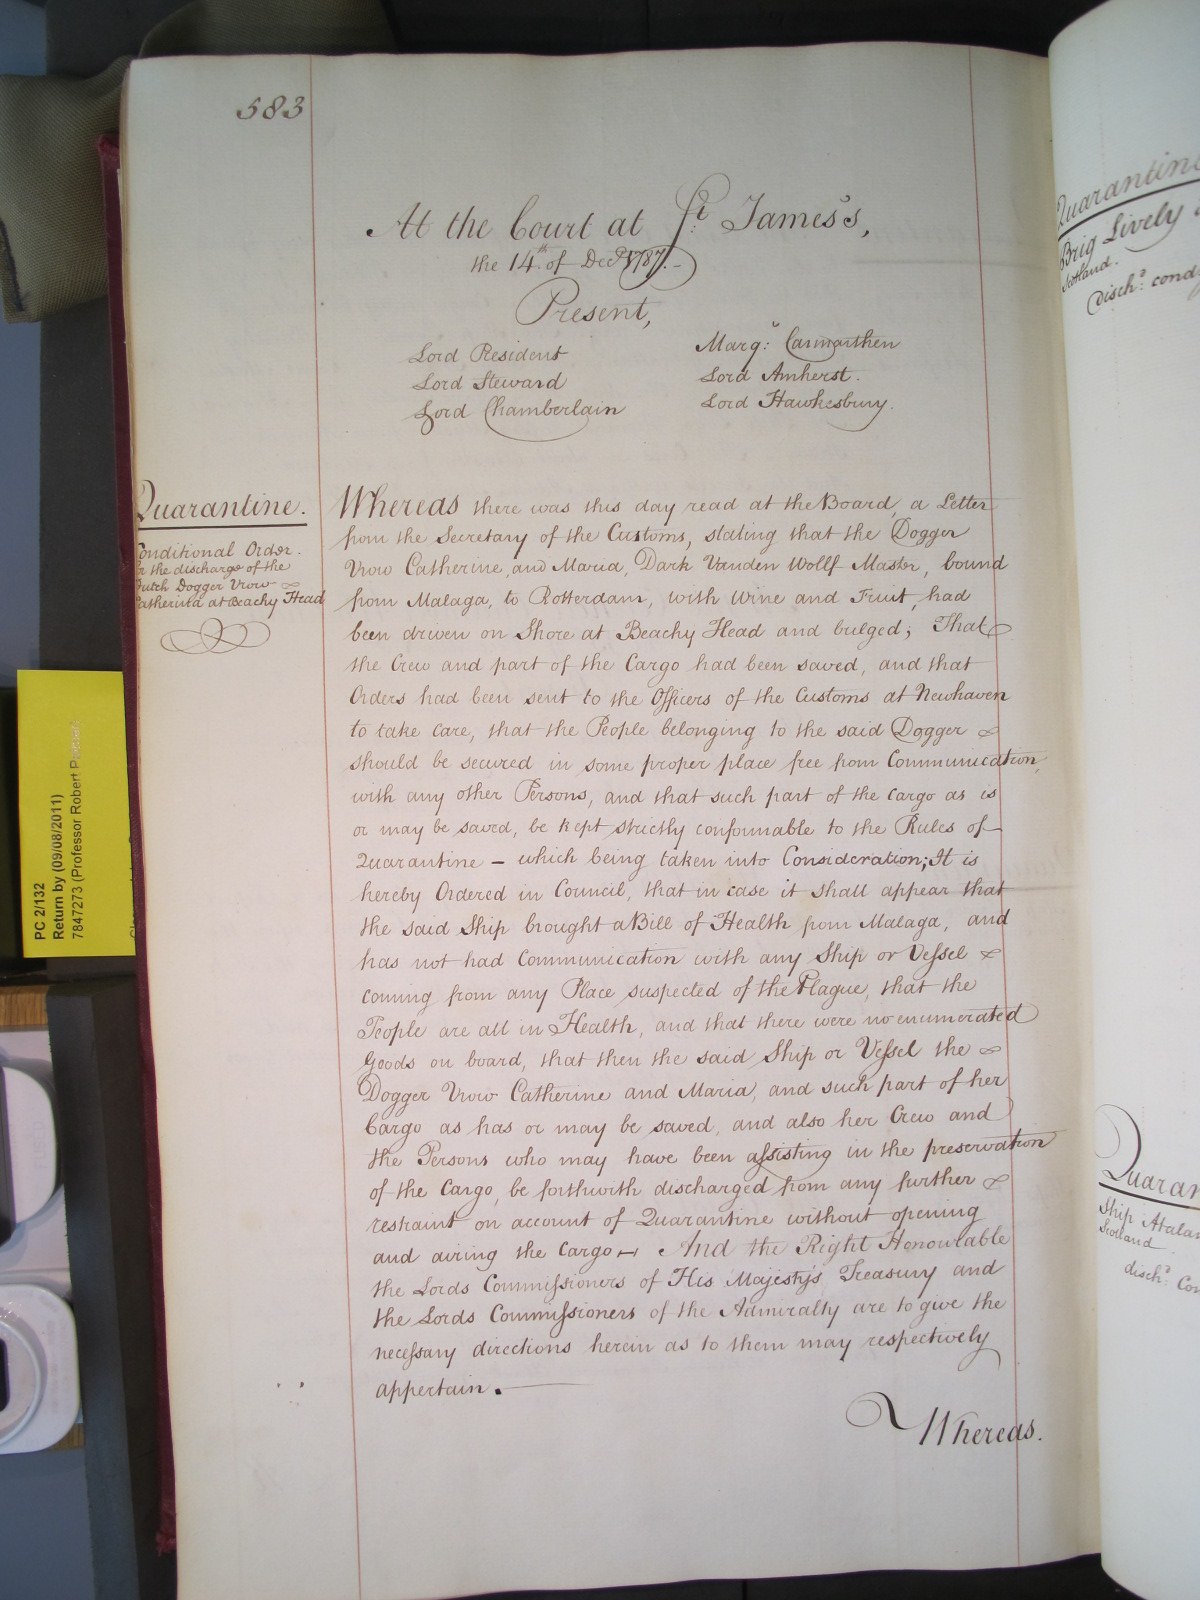 583
At the Court at St. James's,
the 14th. of Decr. 1787.
Present,
Lord President
Lord Steward
Lord Chamberlain
Marqs: Carmarthen
Lord Amherst.
Lord Hawkesbury.
Quarantine.
Conditional Order.
for the discharge of the
Dutch Dogger Vrow
Catherina at Beachy Head
Whereas there was this day read at the Board, a Letter
from the Secretary of the Customs, stating that the Dogger
Vrow Catherine, and Maria, Dark Vanden Wolff Master, bound
from Malaga, to Rotterdam, with Wine and Fruit, had
been driven on Shore at Beachy Head and bulged; That
the Crew and part of the Cargo had been saved, and that
Orders had been sent to the Officers of the Customs at Newhaven
to take care, that the People belonging to the said Dogger
should be secured in some proper place free from Communication,
with any other Persons, and that such part of the Cargo as is
or may be saved, be kept strictly conformable to the Rules of
Quarantine – which being taken into Consideration; It is
hereby Ordered in Council, that in case it shall appear that
the said Ship brought a Bill of Health from Malaga, and
has not had Communication with any Ship or Vessel
coming from any Place suspected of the Plague, that the
People are all in Health, and that there were no enumerated
Goods on board, that then the said Ship or Vessel the
Dogger Vrow Catherine and Maria, and such part of her
Cargo as has or may be saved, and also her Crew and
the Persons who may have been assisting in the preservation
of the Cargo, be forthwith discharged from any further
restraint on account of Quarantine without opening
and airing the Cargo – And the Right Honourable
the Lords Commissioners of His Majesty's Treasury and
the Lords Commissioners of the Admiralty are to give the
necessary directions herein as to them may respectively
appertain.
Whereas.
PC 2/132
Return by (09/08/2011)
7847273 (Professor Robert
Quarantine
Brig Lively
Scotland.
disch:d
Quaran
Ship Atalan
Scotland
disch:d Con